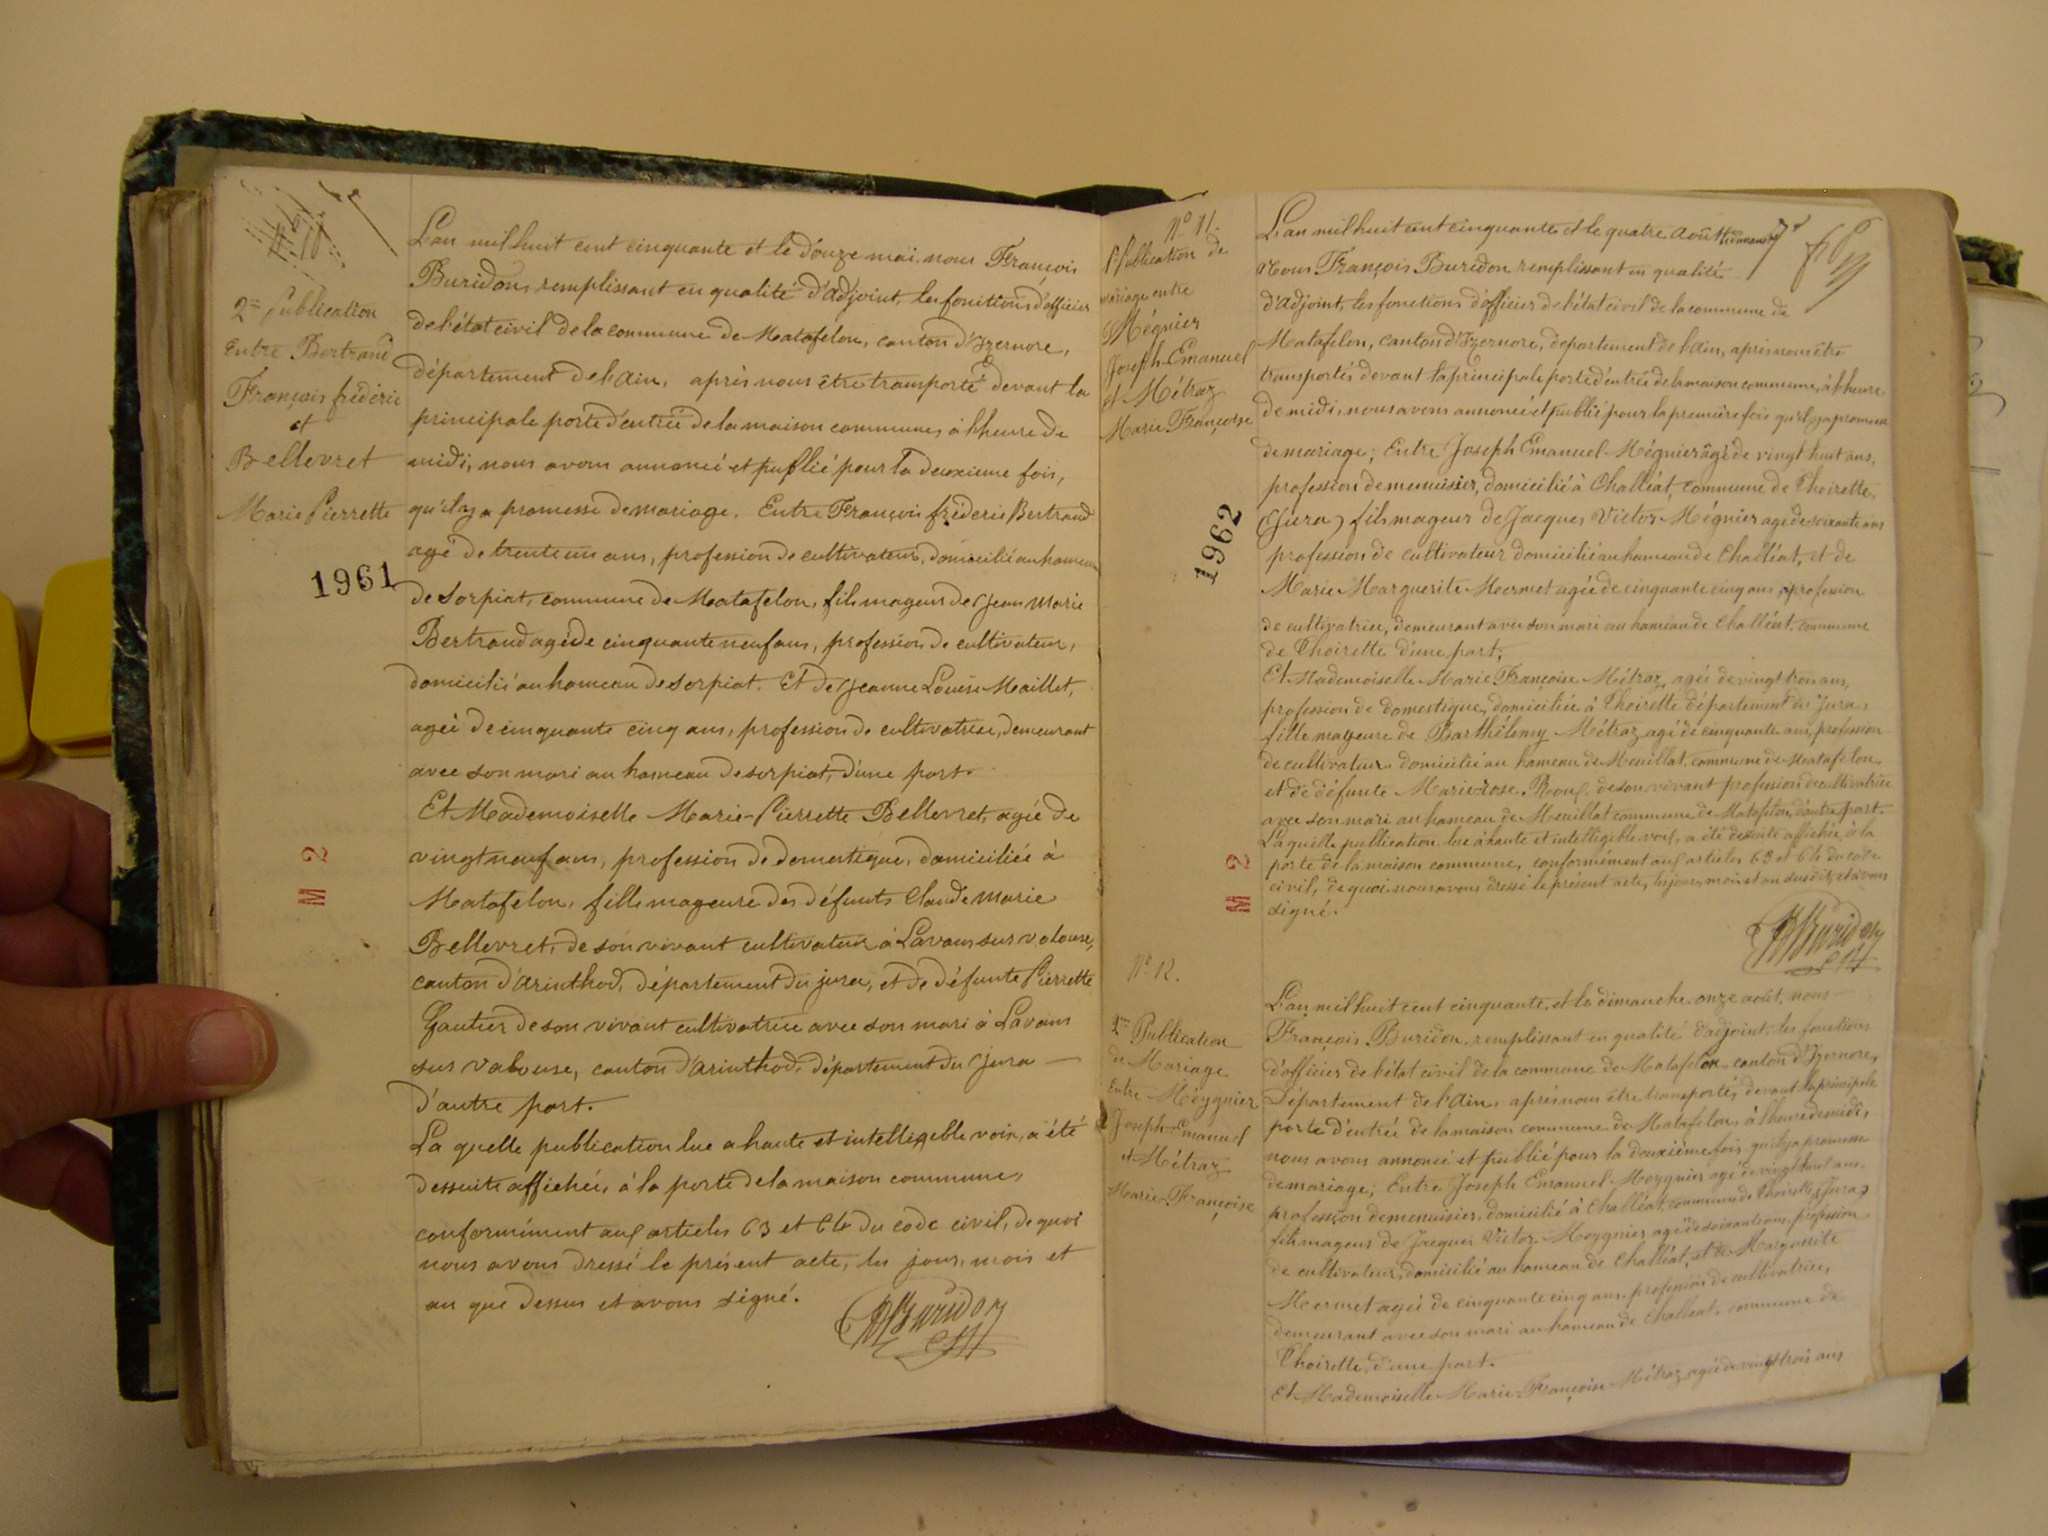 2me Publication
Entre Bertrand
François fréderic
et
Bellevret
Marie Pierrette
1961
M 2
L'an mil huit cent cinquante et le douze mai nous François
Buridon, remplissant en qualité d'adjoint, les fonctions d'officier
de l'état civil de la commune de Matafelon, canton d'Izernore,
département de l'Ain, après nous être transporté devant la
principale porte d'entrée de la maison commune, à l'heure de
midi, nous avons annoncé et publié pour la deuxième fois,
qu'il y a promesse de mariage. Entre François fréderic Bertrand
agé de trente un ans, profession de cultivateur, domicilié au hameau
de Sorpiat, commune de Matafelon, fils mageur de Jean Marie
Bertrand agé de cinquante neuf ans, profession de cultivateur,
domicilié au hameau de Sorpiat. Et de Jeanne Louise Maillet,
agée de cinquante cinq ans, profession de cultivatrice, demeurant
avec son mari au hameau de Sorpiat, d'une part.
Et Mademoiselle Marie-Pierrette Bellevret, agée de
vingt neuf ans, profession de domestique, domiciliée à
Matafelon, fille mageure des défunts Claude Marie
Bellevret, de son vivant cultivateur à Lavans sur valouse,
canton d'Arinthod, département du jura, et de défunte Pierrette
Gautier de son vivant cultivatrice avec son mari à Lavans
sur Valouse, canton d'Arinthod, département du Jura
d'autre part.
La quelle publication lue a haute et intelligeble voix, a été
dessuite affichée, à la porte de la maison commune,
conformément aux articles 63 et 64 du code civil, de quoi
nous avons dressé le présent acte, les jour, mois et
an que dessus et avons signé.
Buridon
No 11.
Publication de
mariage entre
Mégnier
Joseph Emanuel
et Métraz
Marie Françoise
1962
M 2
L'an mil huit cent cinquante et le quatre août
Nous François Buridon remplissant en qualité
d'adjoint, les fonctions d'officier de l'état civil de la commune de
Matafelon, canton d'Izernore, département de l'Ain, après nous être
transportés devant la principale porte d'entrée de la maison commune, à l'heure
de midi, nous avons annoncé et publié pour la première fois qu'il y a promesse
de mariage; Entre Joseph Emanuel Mégnier âgé de vingt huit ans,
profession de menuisier, domicilié à Challéat, commune de Thoirette,
(Jura) fils mageur de Jacques Victor Mégnier agé de soixante ans
profession de cultivateur domicilié au hameau de Challéat, et de
Marie Marguerite Mermet agée de cinquante cinq ans, profession
de cultivatrice, demeurant avec son mari au hameau de Challéat, commune
de Thoirette d'une part;
Et Mademoiselle Marie Françoise Métraz, agée de vingt trois ans,
profession de domestique, domiciliée à Thoirette département du Jura,
fille mageure de Barthélemy Métraz agé de cinquante ans, profession
de cultivateur domicilié au hameau de Meuillat, commune de Matafelon
et de défunte Marie rose Roux, de son vivant profession de cultivatrice
avec son mari au hameau de Meuillat commune de Matafelon, d'autre part.
La quelle publication lue à haute et intelligeble voix, a été dessuite affichée, à la
porte de la maison commune, conformément aux articles 63 et 64 du code
civil, de quoi nous avons dressé le présent acte, les jour, mois et an susdit, et avons
signé.
Buridon
No 12.
2me Publication
de Mariage
Entre Méygnier
Joseph-Emanuel
et Métraz
Marie-Françoise
L'an mil huit cent cinquante, et le dimanche onze août, nous
François Buridon, remplissant en qualité d'adjoint, les fonctions
d'officier de l'état civil de la commune de Matafelon canton d'Izernore,
Département de l'Ain, après nous être transportés, devant la principale
porte d'entrée de la maison commune de Matafelon, à l'heure de midi,
nous avons annoncé et publié pour la deuxième fois, qu'il y a promesse
de mariage; Entre Joseph Emanuel Meygnier agé de vingt huit ans,
profession de menuisier, domicilié à Challéat, commune de Thoirette (Jura)
fils mageur de Jacques Victor Meygnier agé de soixante ans, profession
de cultivateur, domicilié au hameau de Challéat, et de Marguerite
Mermet agée de cinquante cinq ans, profession de cultivatrice,
demeurant avec son mari au hameau de Challéat, commune de
Thoirette, d'une part.
Et Mademoiselle Marie Françoise Métraz, agée de vingt trois ans